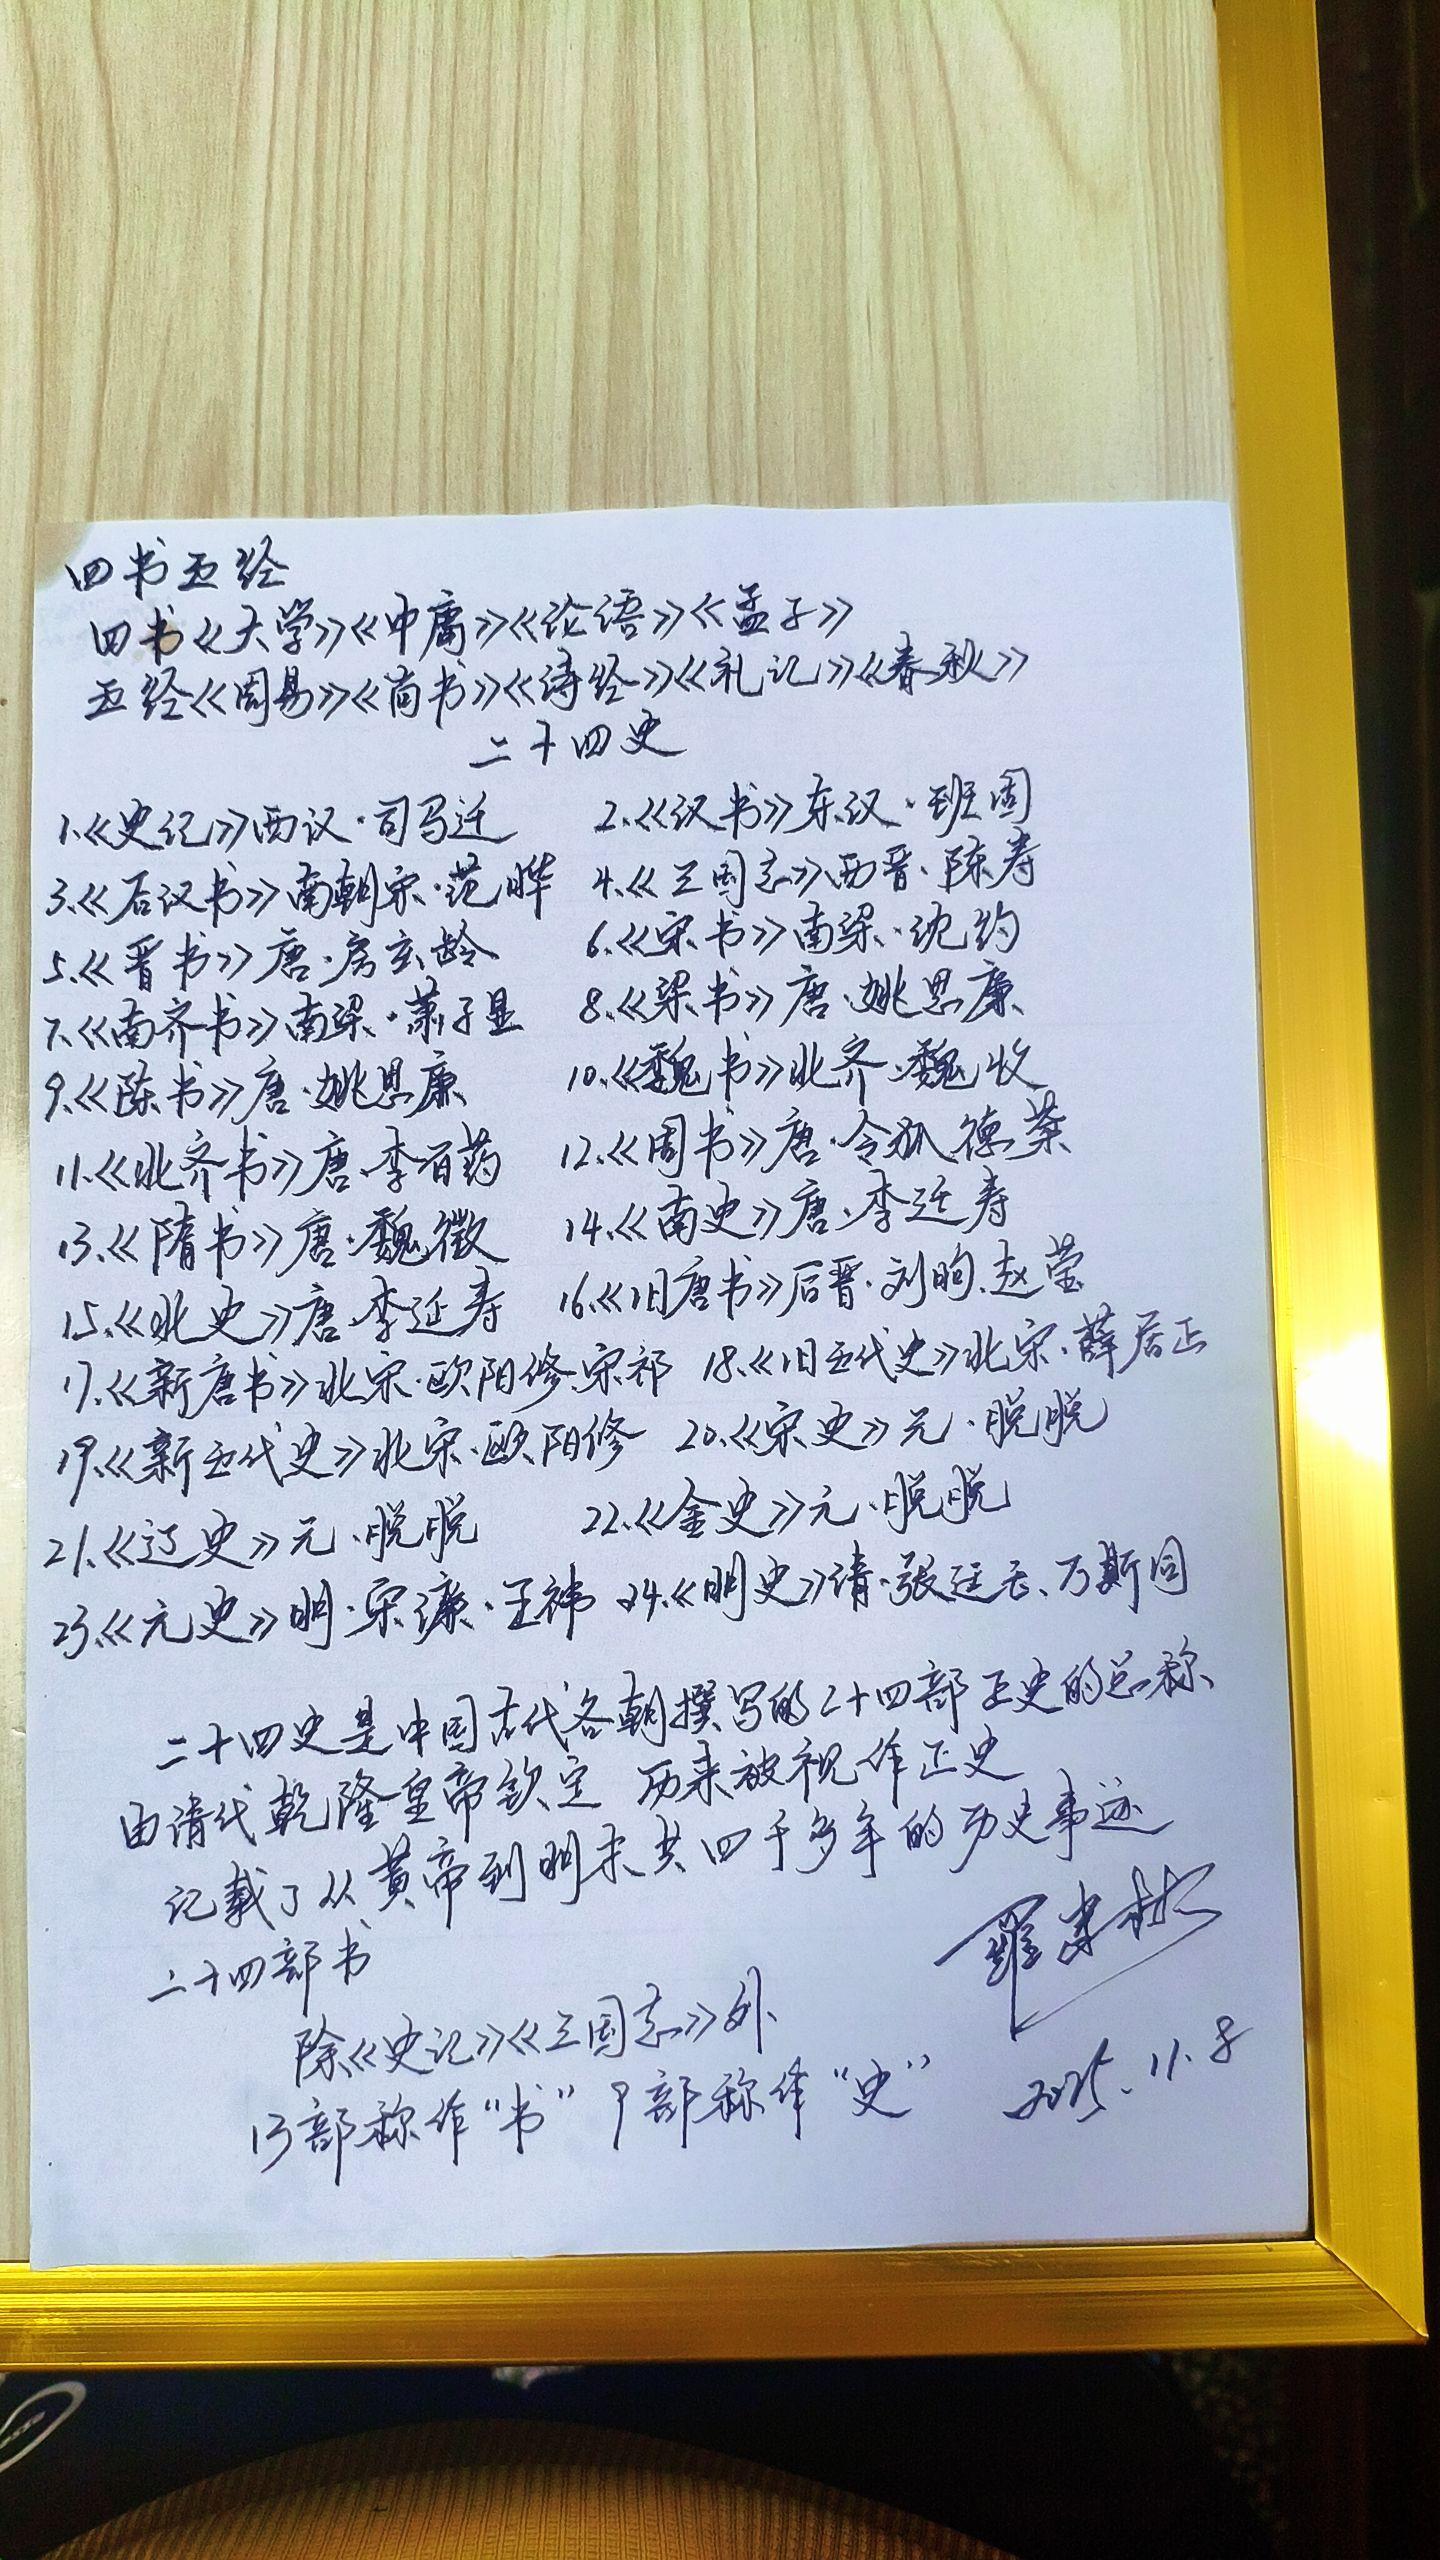 四书五经
四书《大学》《中庸》《论语》《孟子》
五经《周易》《尚书》《诗经》《礼记》《春秋》
二十四史
1.《史记》西汉·司马迁 2.《汉书》东汉·班固
3.《后汉书》南朝宋·范晔 4.《三国志》西晋·陈寿
5.《晋书》唐·房玄龄 6.《宋书》南梁·沈约
7.《南齐书》南梁·萧子显 8.《梁书》唐·姚思廉
9.《陈书》唐·姚思廉 10.《魏书》北齐·魏收
11.《北齐书》唐·李百药 12.《周书》唐·令狐德棻
13.《隋书》唐·魏徵 14.《南史》唐·李延寿
15.《北史》唐·李延寿 16.《旧唐书》后晋·刘昫、赵莹
17.《新唐书》北宋·欧阳修、宋祁 18.《旧五代史》北宋·薛居正
19.《新五代史》北宋·欧阳修 20.《宋史》元·脱脱
21.《辽史》元·脱脱 22.《金史》元·脱脱
23.《元史》明·宋濂·王祎 24.《明史》清·张廷玉、万斯同
二十四史是中国古代各朝撰写的二十四部正史的总称
由清代乾隆皇帝钦定 历来被视作正史
记载了从黄帝到明末共四千多年的历史事迹
二十四部书
除《史记》《三国志》外
13部称作“书”9部称作“史”
2025.11.8